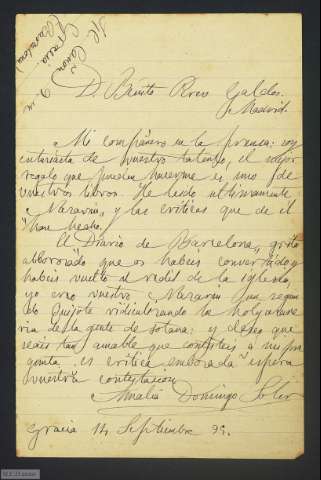 Cañon 9
Gracia
(Barcelona)
D. Benito Perez Galdos.
Madrid.
Mi compañero en la prensa: soy
entusiasta de vuestro talento, el mejor
regalo que pueden hacerme es uno de
vuestros libros. He leido ultimamente
"Nazarin" y las criticas que de él
han hecho.
El Diario de Barcelona, grita
alborozado que os habeis convertido y
habeis vuelto al redil de la iglesia,
yo creo vuestro Nazarin un segun
do Quijote ridiculizando la
ria de la gente de sotana; y deseo que
seais tan amable que contesteis á mi pre
gunta es critica embozada? espera
vuestra contestacion
Amalia Domingo Soler
Gracia 14 Septiembre 95.